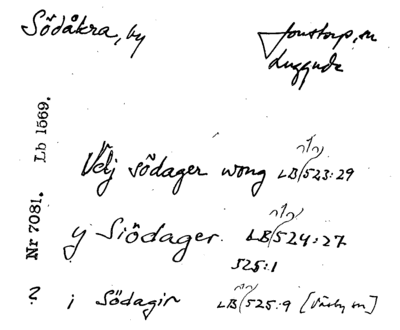 Södåkra, by
Jonstorp, sn
Luggude
Lb 1569.
Nr 7081.
Vdj södager wong LB 523:29
y Siödager. LB 524:27
525:1
? i Södagin LB 525:9 [Väsby sn]